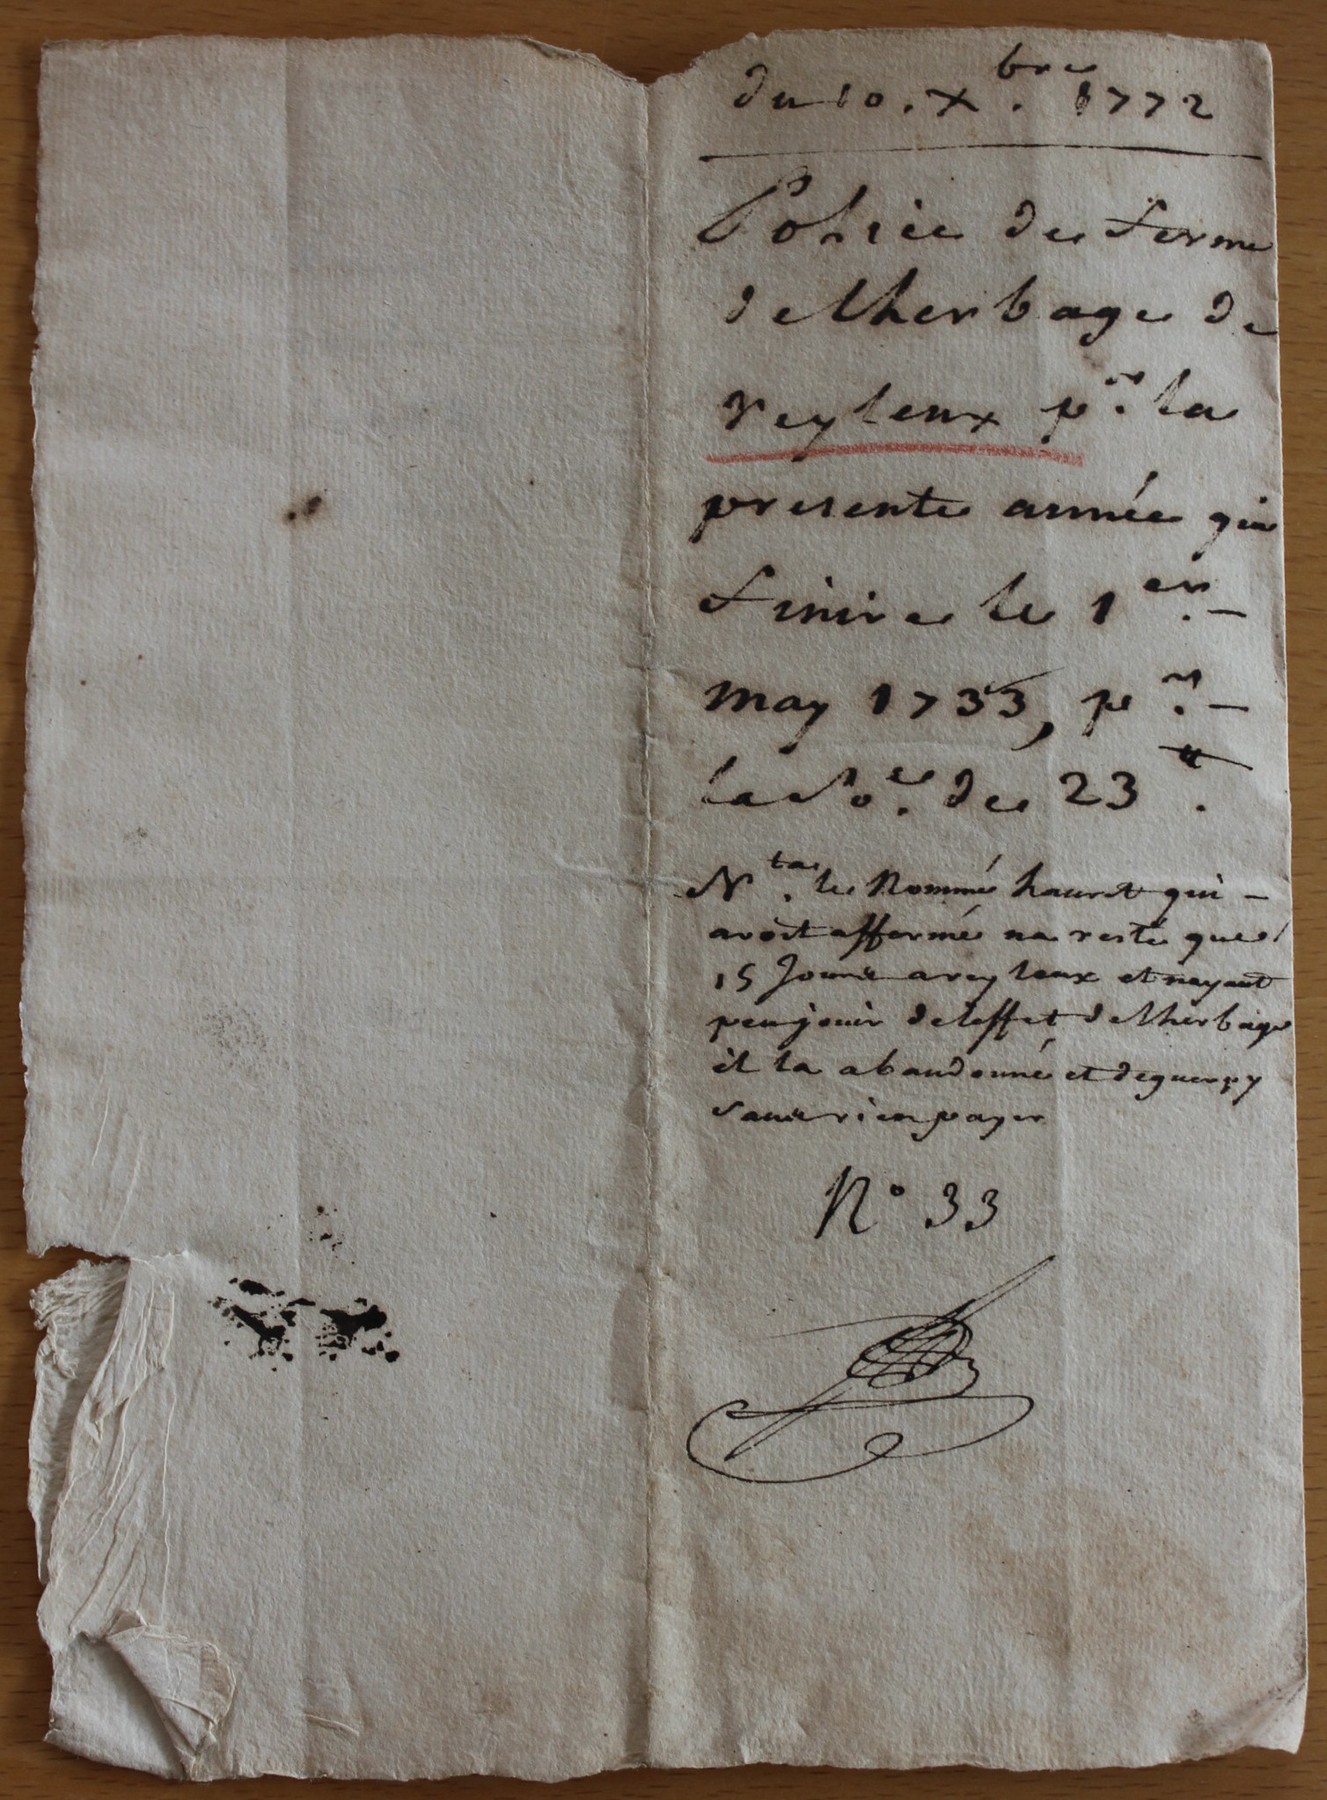 du 10. Xbre. 1772
Police de ferme
de lherbage de
veyleux pr. la
presente année qui
finira le 1er. -
may 1733, pr. -
la So.e de 23 tt.
Nta. le Nommé hauret qui -
avoit affermé na resté que
15 Jours a veyleux et nayant
peu jouir de leffet de lherbage
il la abandonné et deguerpy
sans rien payer
N° 33